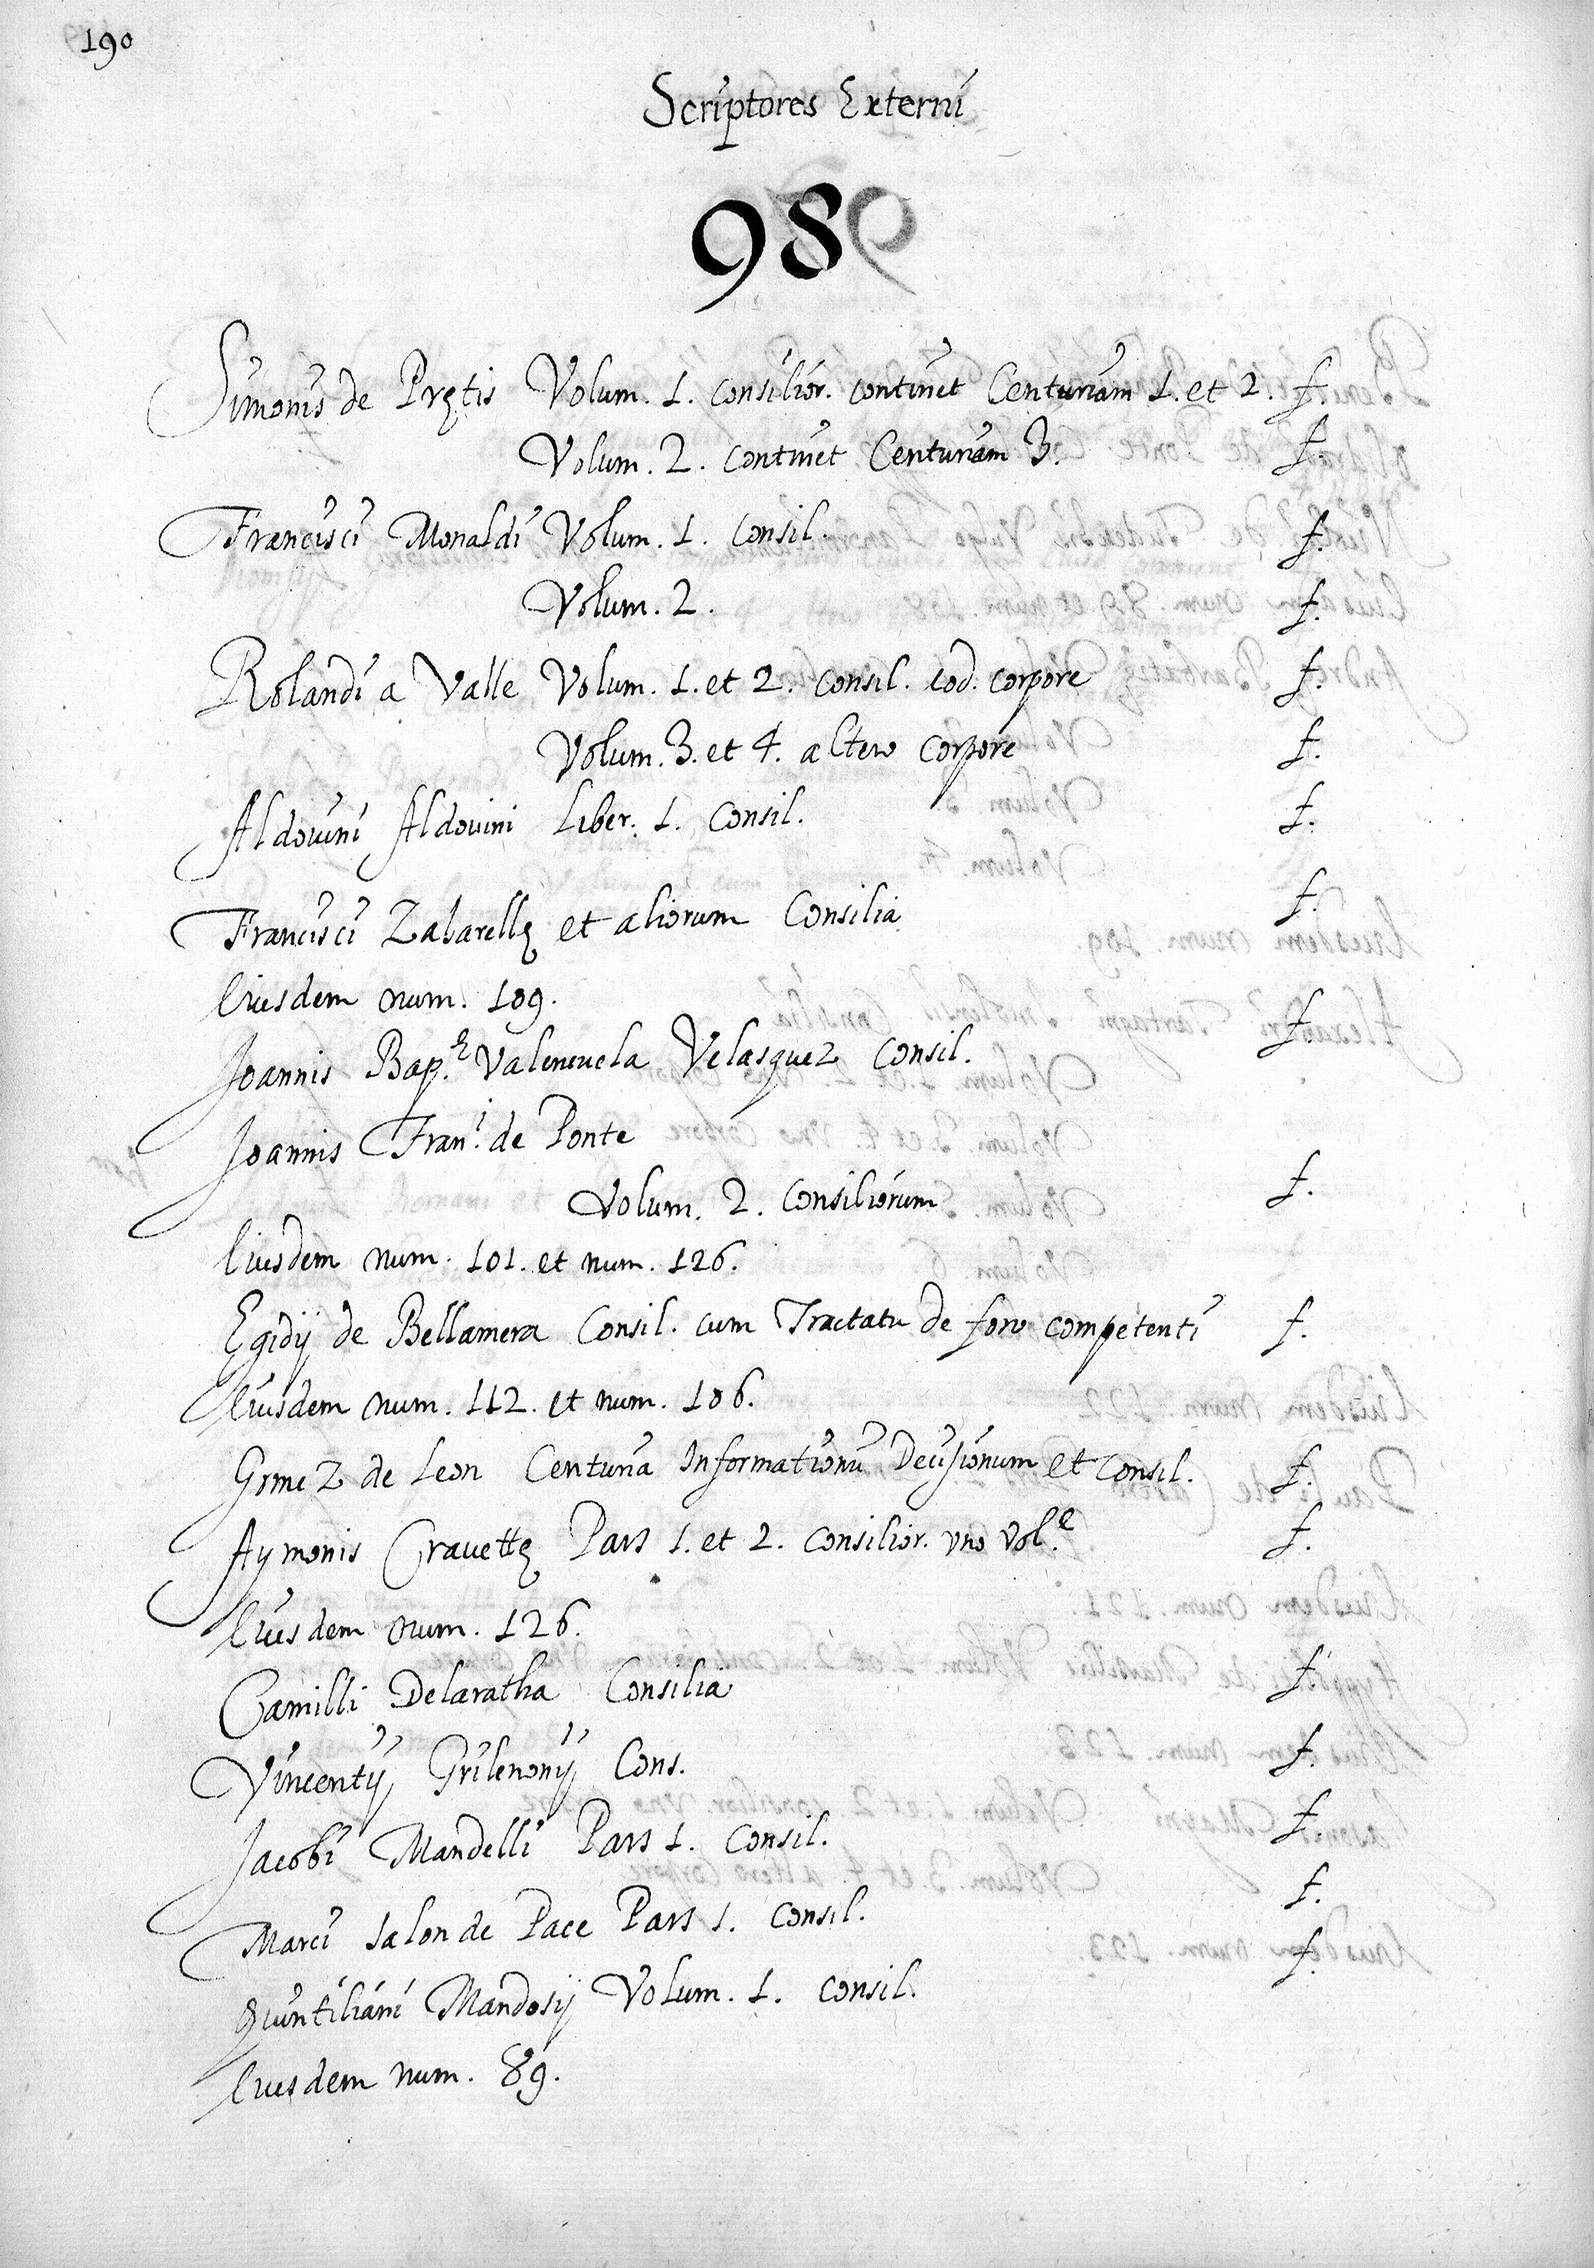 190
Scriptores Externi
98
Simonis de Prętis Volum. 1. consilior. continet Centuriam 1. et 2. f.
Volum. 2. continet Centuriam 3. f.
Francisci Monaldi Volum. 1. Consil. f.
Volum. 2. f.
Rolandi a Valle Volum. 1. et 2. Consil. eod. corpore f.
Volum. 3. et 4. altero corpore f.
Aldouini Aldouini Liber. 1. Consil. f.
Francisci Zabarellę et aliorum Consilia f.
Eiusdem num. 109.
Joannis Bap.ę Valenuela Velasquez Consil. f.
Joannis Fran.i de Ponte
Volum. 2. Consiliorum f.
Eiusdem num. 101. et num. 126.
Egidij de Bellamera Consil. cum Tractatu de foro competenti f.
Eiusdem num. 112. et num. 106.
Gomez de Leon Centuria Informationū Decisionum et Consil. f.
Aymonis Crauettę Pars 1. et 2. Consilior. vno Vol.e f.
Eiusdem num. 126.
Camilli Delaratha Consilia f.
Vincentij Grilenonij Cons. f.
Jacobi Mandelli Pars 1. Consil. f.
Marci Salon de Pace Pars 1. Consil. f.
Quintiliani Mandosij Volum. 1. Consil. f.
Eiusdem num. 89.